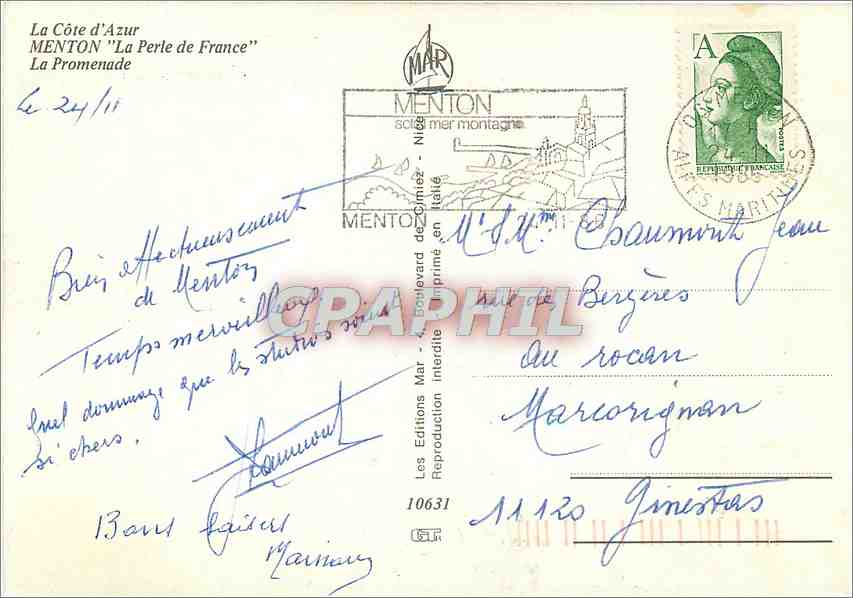 La Côte d'Azur
MENTON "La Perle de France"
La Promenade
Le 24/11
Bien affectueusement
de Menton
Temps merveilleux
Quel dommage que les studios soient
si chers.
Chaumont
Bons baisers
MAR
MENTON
soleil mer montagne
MENTON
A
POSTES
REPUBLIQUE FRANÇAISE
ALPES MARITIMES
Mr & Mme Chaumont Jean
rue de Bergères
au rocan
Marcorignan
11120 Ginestas
Les Editions Mar - 4, Boulevard de Cimiez - Nice
Reproduction interdite - Imprimé en Italie
10631
CPAPHIL